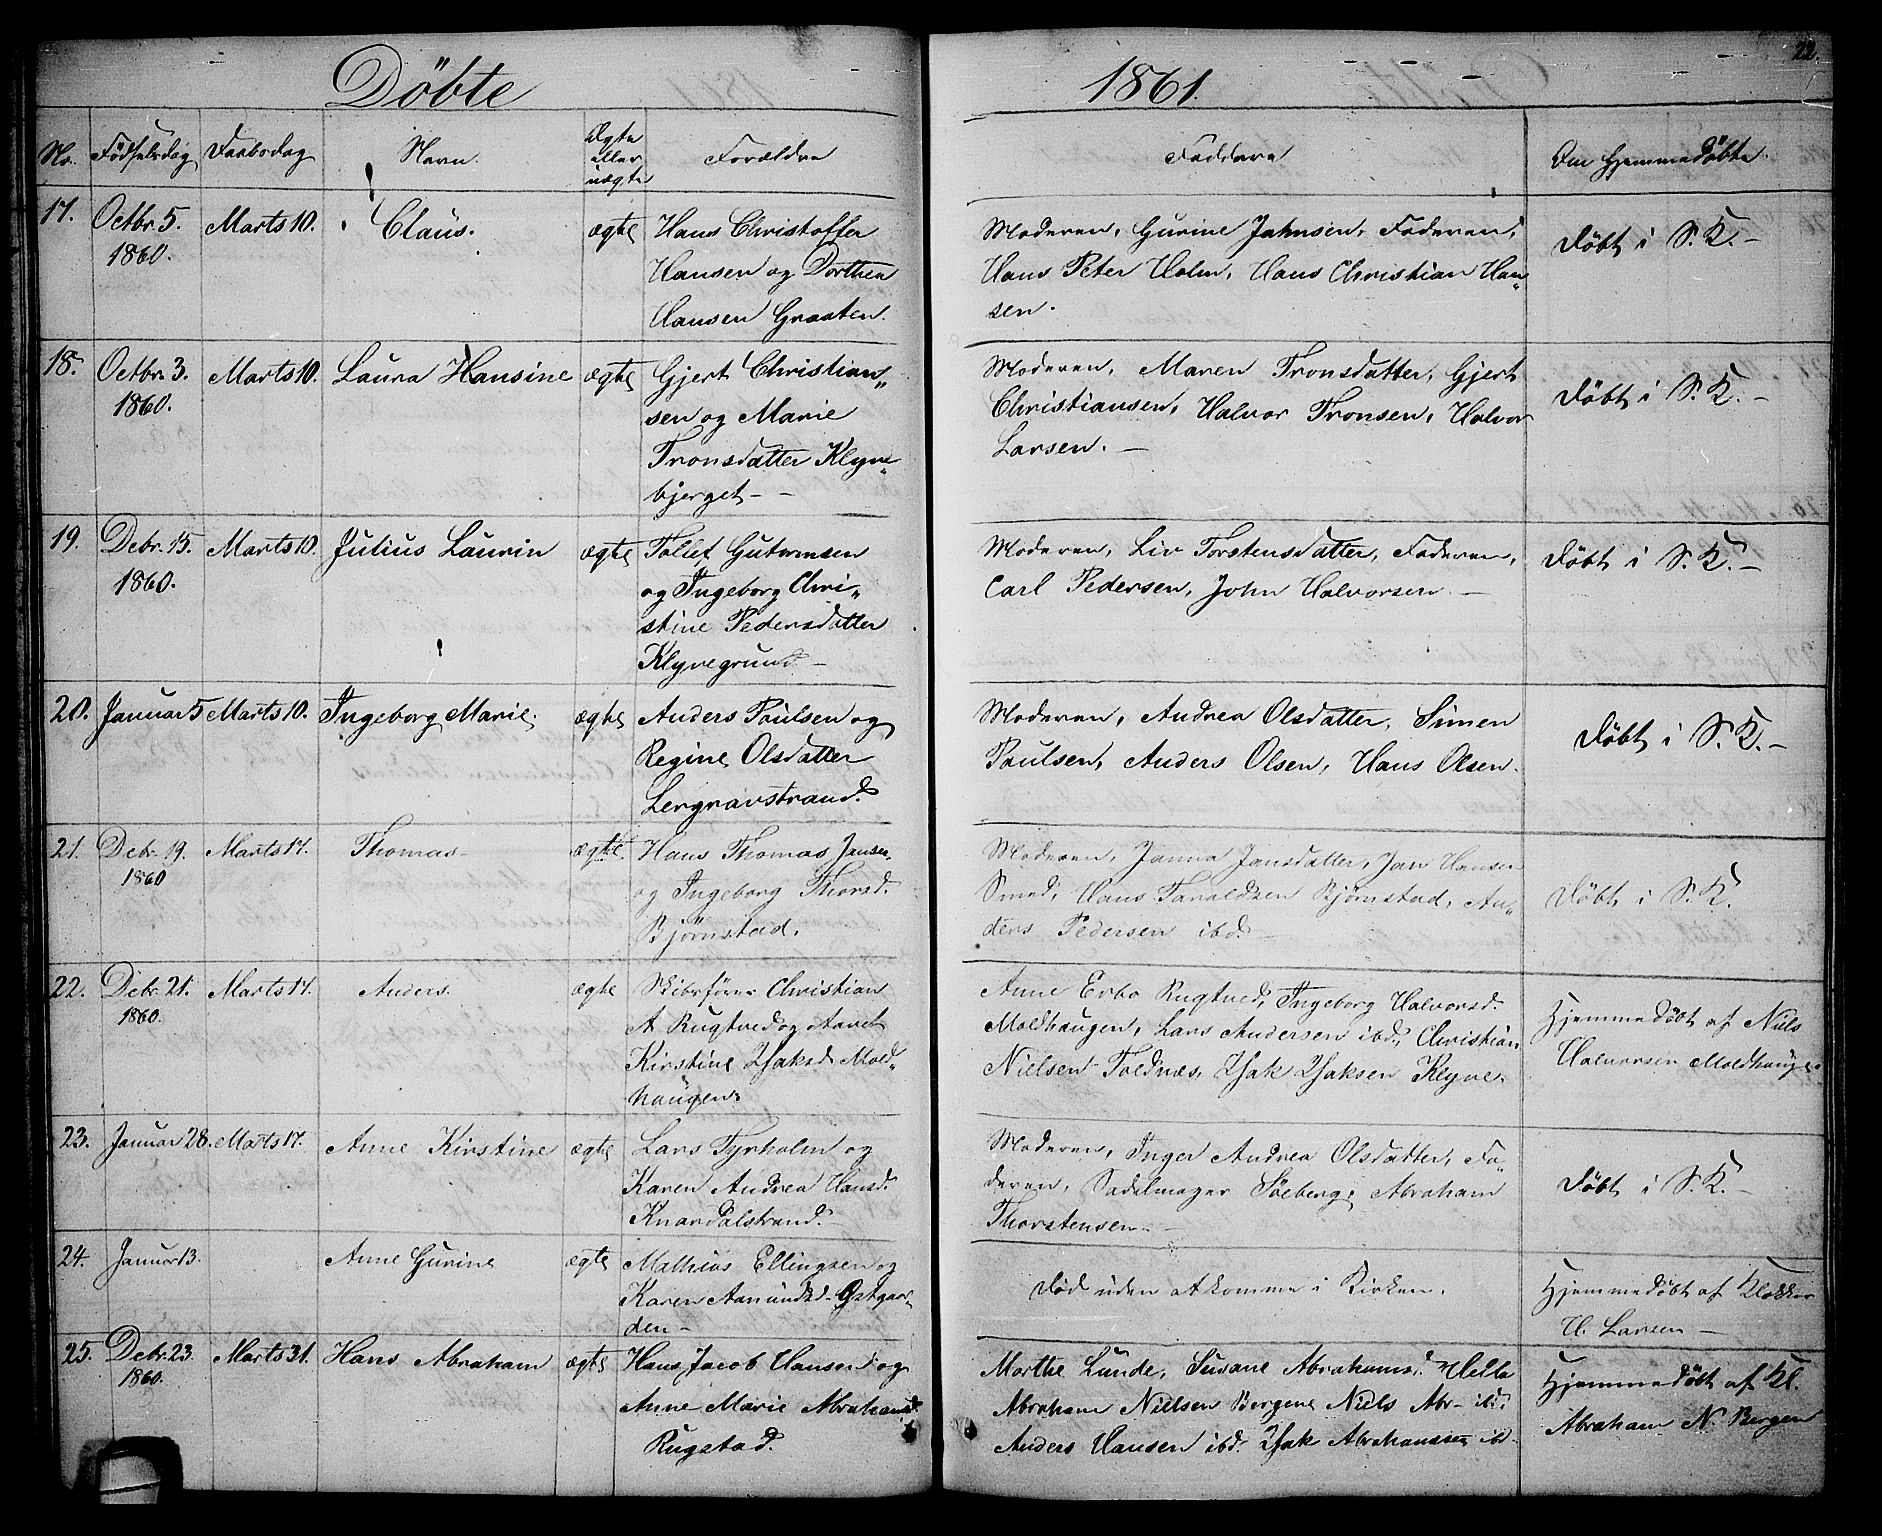 Döbte
1861.
22.
No. Fødselsdag Daabsdag Navn. Ægte eller uægte Forældre Faddere Om Hjemmedöbte.
17. Octbr. 5. 1860. Marts 10. Claus. ægte
Hans Christoffer
Hansen og Dorthea
Hansen Graaten.
Moderen, Gurine Jahnsen, Faderen,
Hans Peter Holm, Hans Christian Han„
sen.
Döbt i S. K. –
18. Octbr. 3. 1860. Marts 10. Laura Hansine ægte
Gjert Christian„
sen og Marie
Tronsdatter Klyve„
bjerget –
Moderen, Maren Tronsdatter, Gjert
Christiansen, Halvor Tronsen, Halvor
Larsen. –
Döbt i S. K. –
19. Debr. 15. 1860. Marts 10. Julius Laurin ægte
Tollef Gutormsen
og Ingeborg Chri„
stine Pedersdatter
Klyvegrund –
Moderen, Liv Torstensdatter, Faderen,
Carl Pedersen, John Halvorsen –
Döbt i S. K. –
20. Januar 5 Marts 10. Ingeborg Marie. ægte
Anders Poulsen og
Regine Olsdatter
Lergravstrand.
Moderen, Andrea Olsdatter, Simen
Poulsen, Anders Olsen, Hans Olsen.
Döbt i S. K. –
21. Debr. 19. 1860 Marts 17. Thomas ægte
Hans Thomas Jansen
og Ingeborg Thorsd.
Bjørnstad.
Moderen, Janna Jansdatter, Jan Hansen
Smed, Hans Taraldsen Bjørnstad, An„
ders Pedersen ibd. –
Döbt i S. K.
22. Debr. 21. 1860. Marts 17. Anders. ægte
Skibsfører Christian
A Rugtved og Aavet
Kirstine Isaksd. Mold„
haugen.
Anne Erbo Rugtved, Ingeborg Halvorsd.
Moldhaugen, Lars Andersen ibd., Christian
Nielsen Foldnæs, Isak Isaksen Klyve.
Hjemmedöbt af Niels
Halvorsen Moldhaugen
23. Januar 28. Marts 17. Anne Kirstine ægte
Lars Tyrholm og
Karen Andrea Hansd.
Knardalstrand. –
Moderen, Inger Andrea Olsdatter, Fa„
deren, Sadelmager Söeberg, Abraham
Thorstensen. –
Döbt i S. K. –
24. Januar 13. Anne Gurine ægte
Mathias Ellingsen og
Karen Aamundsd. Østgaar„
den –
Död uden at komme i Kirken.
Hjemmedöbt af Klokker
H. Larsen –
25. Debr. 23. 1860. Marts 31. Hans Abraham ægte
Hans Jacob Hansen og
Anne Marie Abrahamsd.
Rugstad.
Marthe Lunde, Susane Abrahamsd. Hella
Abraham Nielsen Bergene Niels Abr– ibd.
Anders Hansen ibd. Isak Abrahamsen ibd–
Hjemmedöbt af Kl.
Abraham N. Bergen